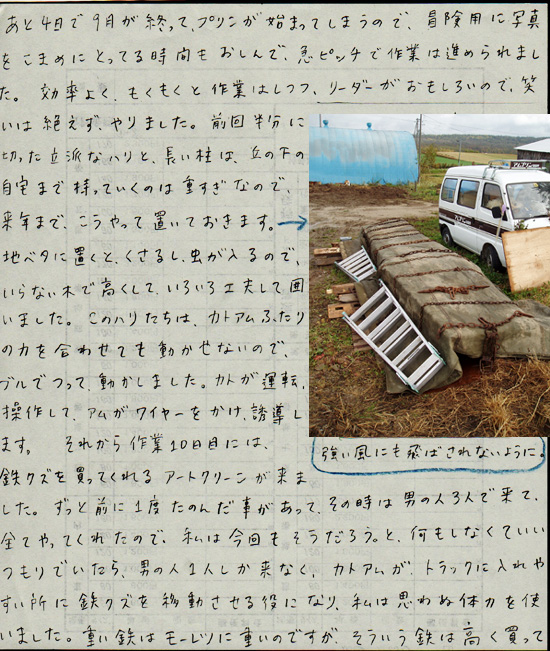 あと4日で9月が終って、プリンが始まってしまうので、冒険用に写真
をこまめにとってる時間もおしんで、急ピッチで作業は進められまし
た。 効率よく、もくもくと作業はしつつ、リーダーがおもしろいので、笑
いは絶えず、やりました。前回半分に
切った立派なハリと、長い柱は、丘の下の
自宅まで持っていくのは重すぎなので、
来年まで、こうやって置いておきます。→
地ベタに置くと、くさるし、虫が入るので、
いらない木で高くして、いろいろ工夫して囲
いました。このハリたちは、カトアムふたり
の力を合わせても動かせないので、
ブルでつって、動かしました。カトが運転、
操作して、アムがワイヤーをかけ、誘導し
ます。 それから作業10日目には、
強い風にも飛ばされないように。
鉄クズを買ってくれるアートクリーンが来ま
した。ずっと前に1度たのんだ事があって、その時は男の人3人で来て、
全てやってくれたので、私は今回もそうだろう。と、何もしなくていい
つもりでいたら、男の人1人しか来なく、カトアムが、トラックに入れや
すい所に鉄クズを移動させる役になり、私は思わぬ体力を使
いました。重い鉄はモーレツに重いのですが、そういう鉄は高く買って